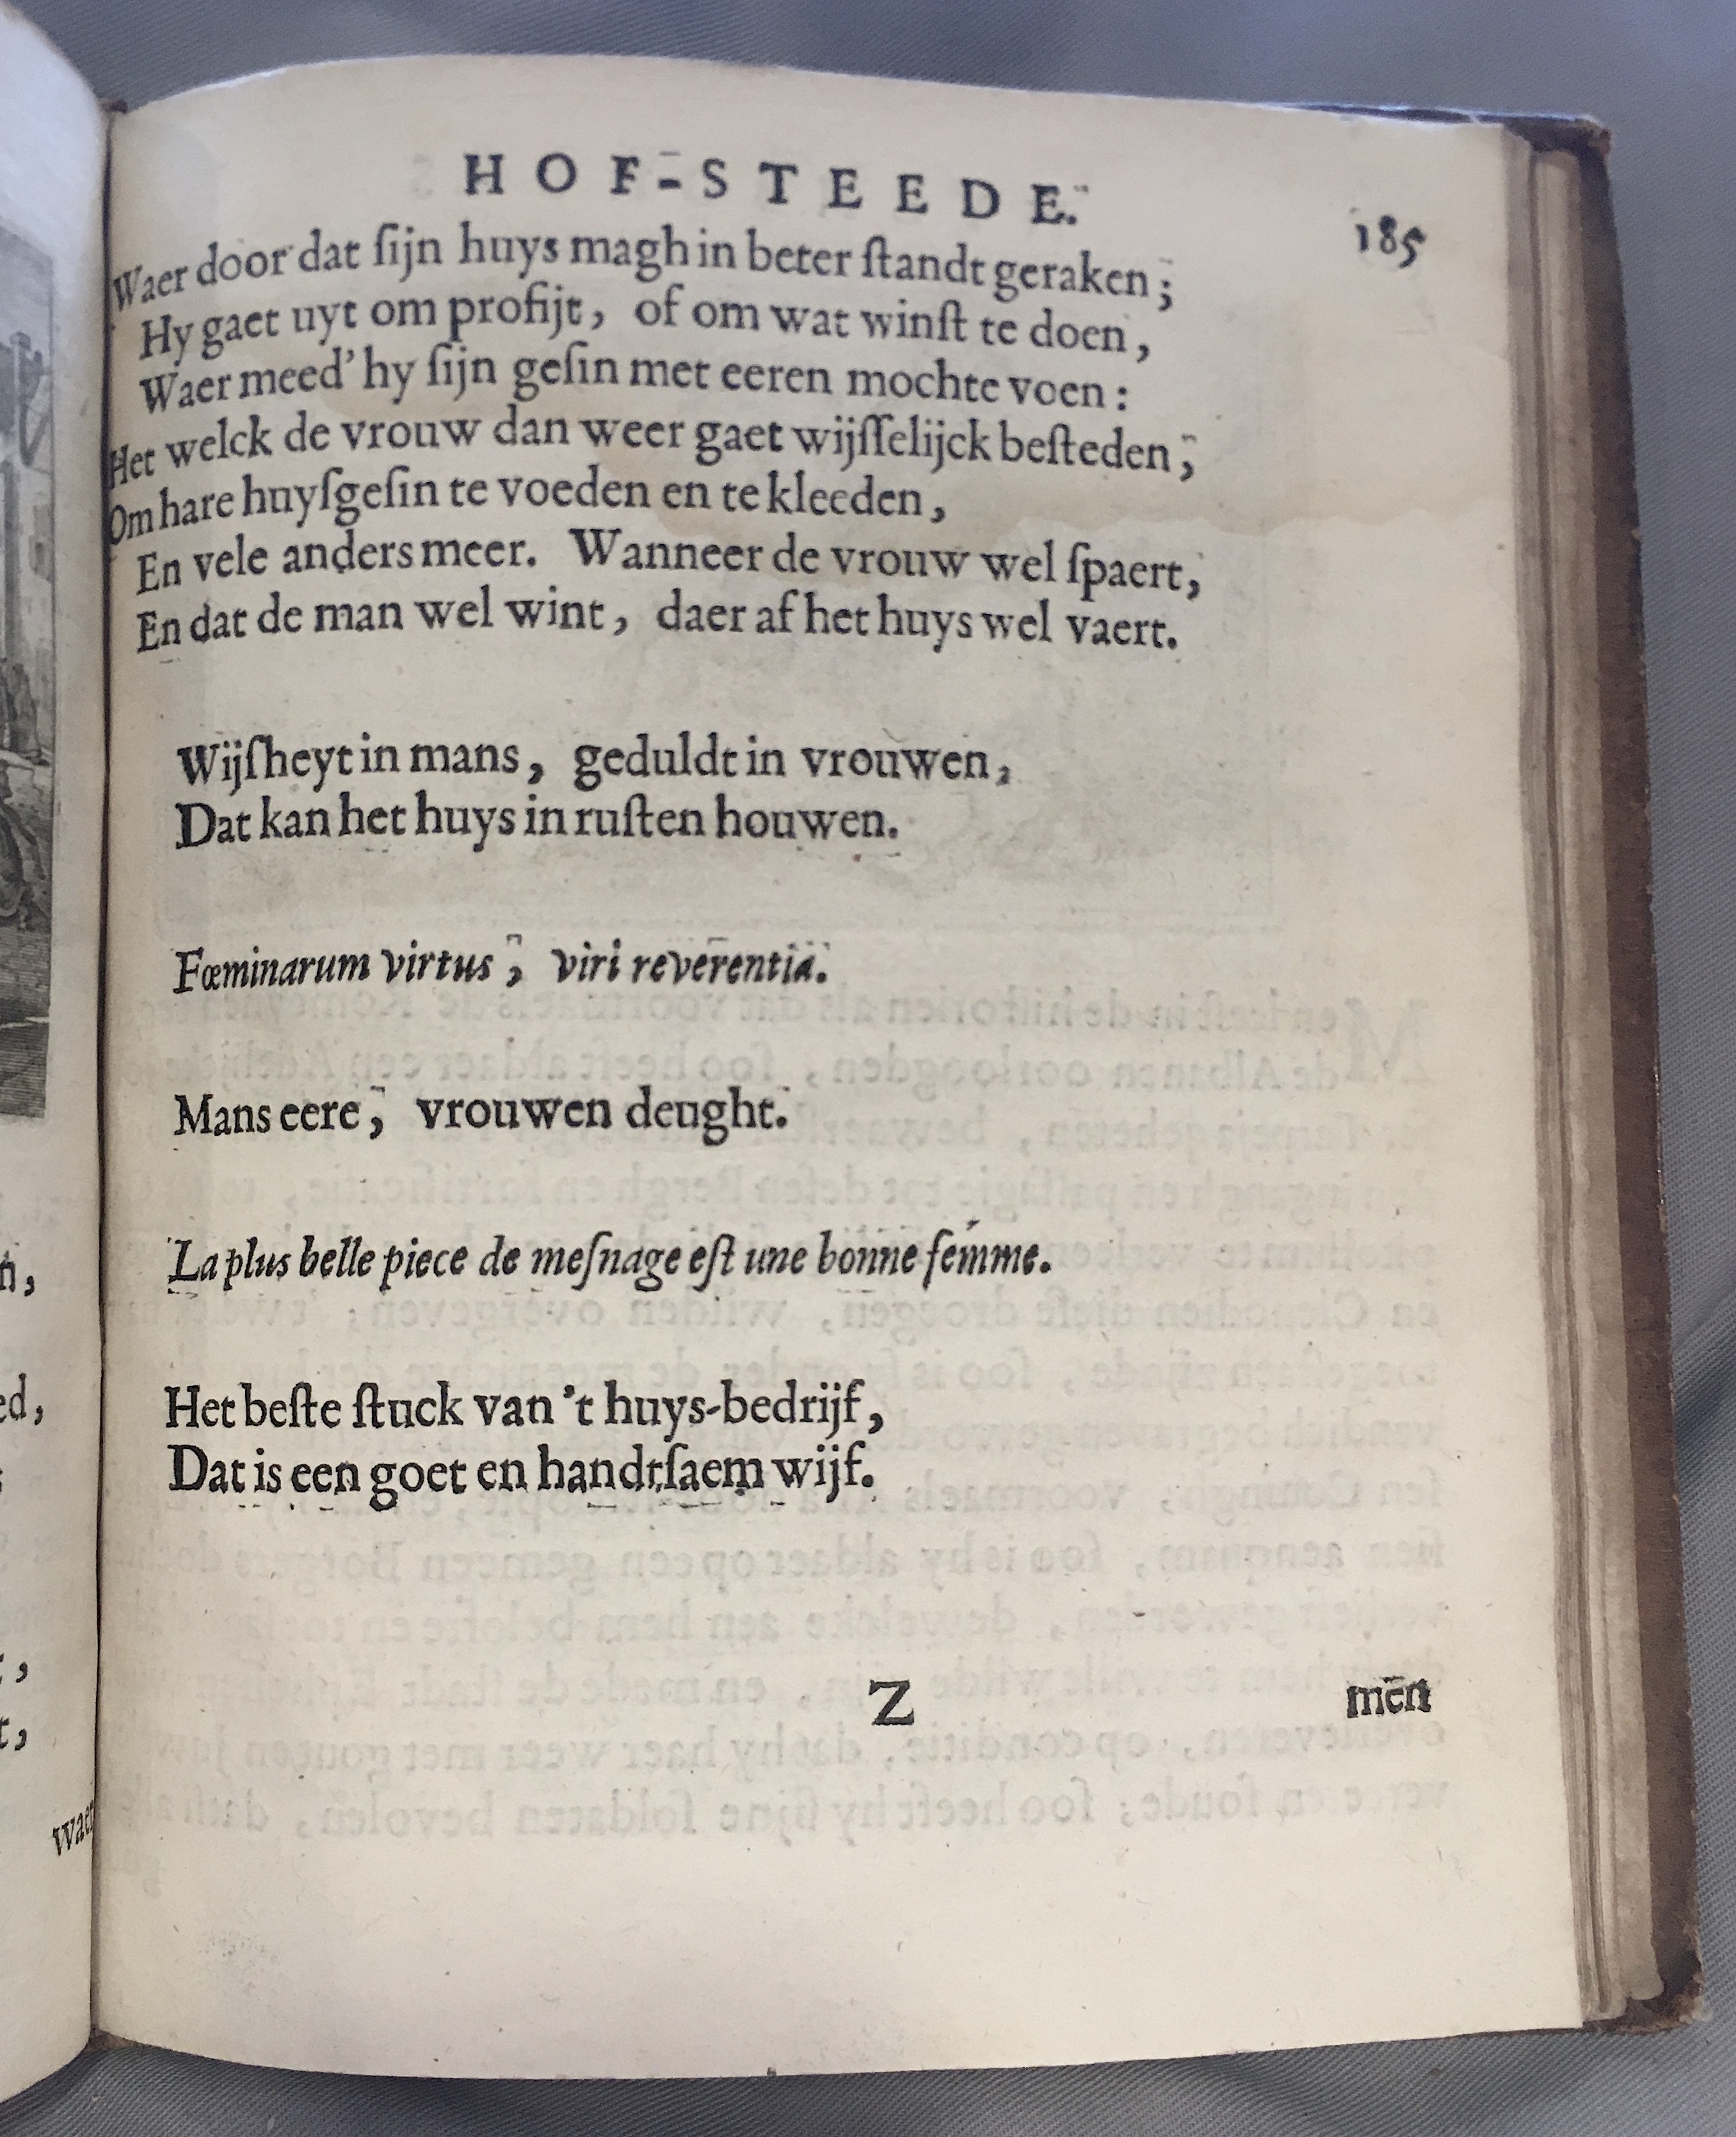 HOF-STEEDE.
185
Waer door dat ſijn huys magh in beter ſtandt geraken;
Hy gaet uyt om profijt, of om wat winſt te doen,
Waer meed' hy ſijn geſin met eeren mochte voen:
Het welck de vrouw dan weer gaet wijſſelijck beſteden,
Om hare huyſgeſin te voeden en te kleeden,
En vele anders meer. Wanneer de vrouw wel ſpaert,
En dat de man wel wint, daer af het huys wel vaert.
Wijſheyt in mans, geduldt in vrouwen,
Dat kan het huys in ruſten houwen.
Fœminarum virtus, viri reverentia.
Mans eere, vrouwen deught.
La plus belle piece de meſnage eſt une bonne femme.
Het beſte ſtuck van 't huys-bedrijf,
Dat is een goet en handtſaem wijf.
Z
men
Waer